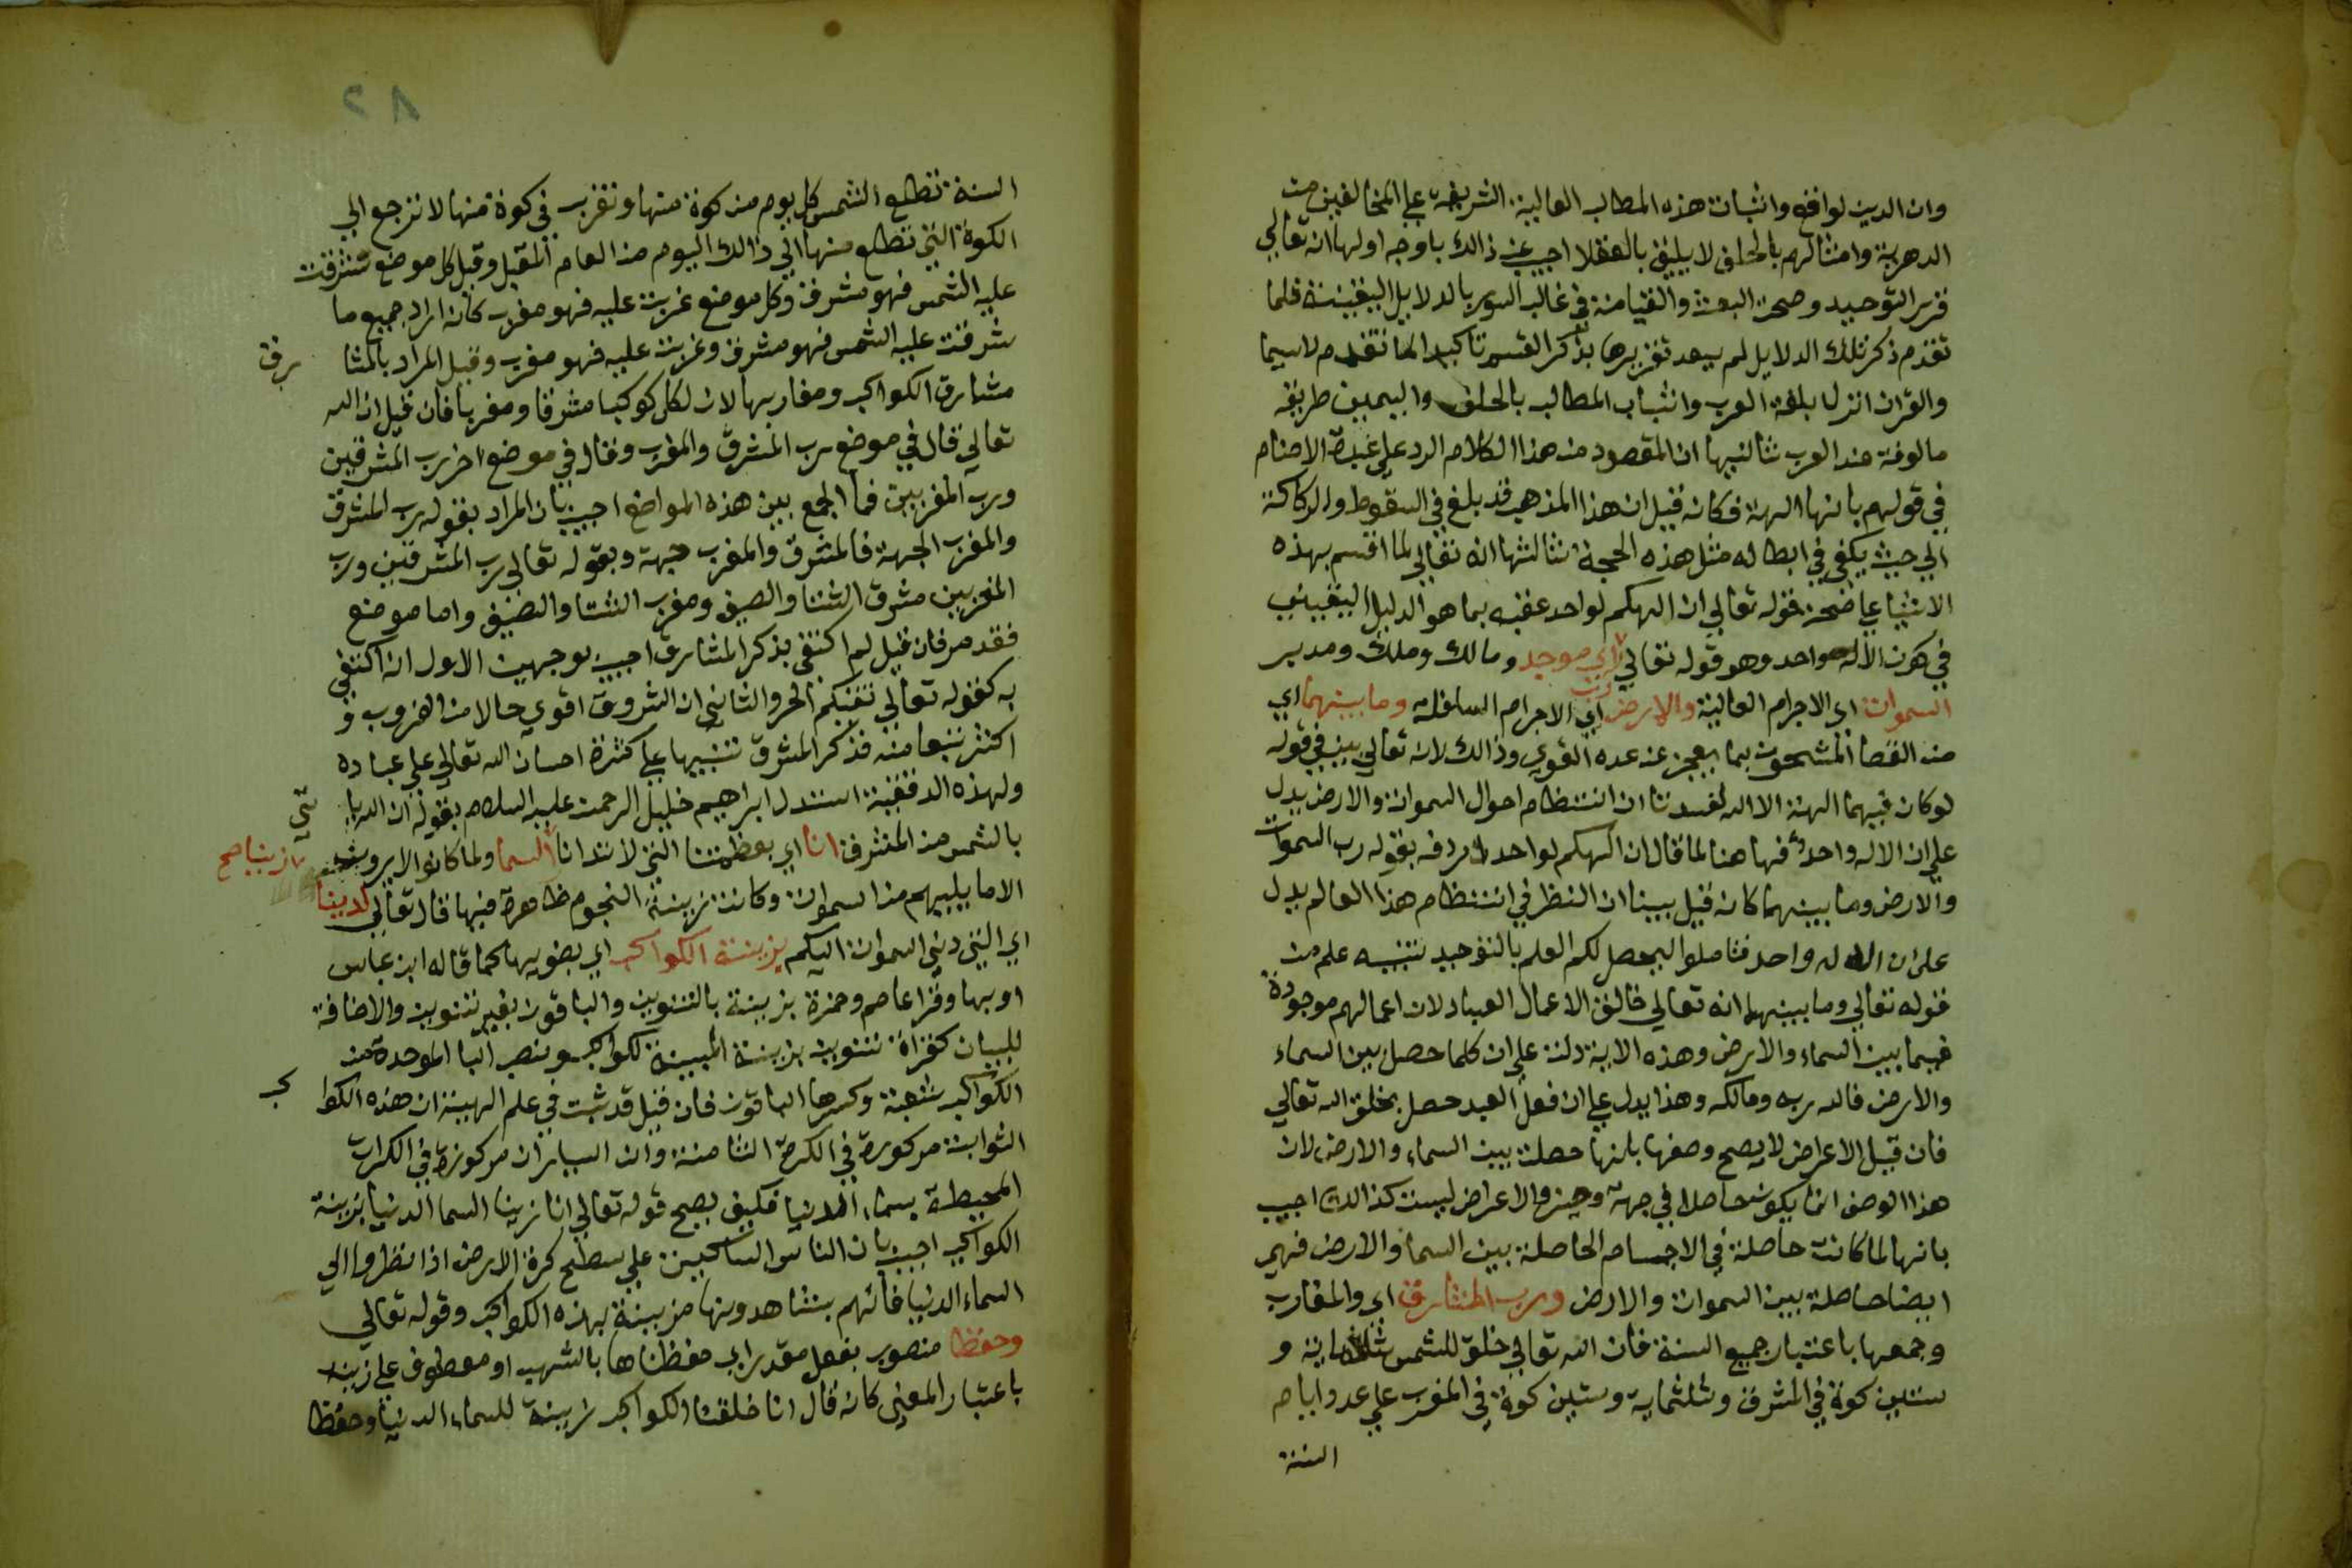 وان الدين لواقع واثبات هذه المطالب العالية الشريفة علي المخالفين من
الدهرية وامثالهم بالحلف لا يليق بالعقلا اجيب عن ذالك باوجه اولها انه تعالي
قرر التوحيد وصحة البعث والقيامة في غالب السور بالدلايل اليقينية فلما
تقدم ذكر تلك الدلايل لم يبعد تقريرها بذكر القسم تاكيدا لما تقدم لاسيما
والقران انزل بلغة العرب واثبات المطالب بالحلف واليمين طريقة
مالوفة عند العرب ثانيها ان المقصود من هذا الكلام الرد علي عبدة الاصنام
في قولهم بانها الهة فكانه قيل ان هذا المذهب قد بلغ في السقوط والركاكة
الي حيث يكفي في ابطاله مثل هذه الحجة ثالثها انه تعالي لما اقسم بهذه
الاشيا علي صحة قوله تعالي ان الهكم لواحد عقبه بما هو الدليل اليقيني
في كون الاله واحد وهو قوله تعالي رب اي موجد ومالك وملك ومدبر
السموات اي الاجرام العالية والارض اي الاجرام السافلة وما بينهما اي
من الفضا المشحون بما يعجز عنه عده القوي وذالك لانه تعالي بين في قوله
لو كان فيهما الهة الا الله لفسدتا ان انتظام احوال السموات والارض يدل
علي ان الاله واحد فها هنا لما قال ان الهكم لواحد اردفه بقوله رب السموات
والارض وما بينهما كانه قيل بينا ان النظر في انتظام هذا العالم يدل
علي ان الاله واحد فتاملوا ليحصل لكم العلم بالتوحيد تنبيه علم من
قوله تعالي وما بينهما انه تعالي خالق الاعمال العباد لان اعمالهم موجودة
فيما بين السماء والارض وهذه الاية دلت علي ان كلما حصل بين السماء
والارض فالله ربه ومالكه وهذا يدل علي ان فعل العبد حصل بخلق الله تعالي
فان قيل الاعراض لا يصح وصفها بانها حصلت بين السماء والارض لان
هذا الوصف انما يكون حاصلا في جهة وحيز والاعراض ليست كذالك اجيب
بانها لما كانت حاصلة في الاجسام الحاصلة بين السما والارض فهي
ايضا حاصلة بين السموات والارض ورب المشارق اي والمغارب
وجمعها باعتبار جميع السنة فان الله تعالي خلق للشمس ثلثماية و
ستين كوة في المشرق وثلثماية وستين كوة في المغرب علي عدد ايام
السنة
٨٢
السنة تطلع الشمس كل يوم من كوة منها وتغرب في كوة منها لا ترجع الي
الكوة التي تطلع منها الي ذالك اليوم من العام المقبل وقيل كل موضع شرقت
عليه الشمس فهو مشرق وكل موضع غربت عليه فهو مغرب كانه اراد جميع ما
شرقت عليه الشمس فهو مشرق وغربت عليه فهو مغرب وقيل المراد بالمشارق
مشارق الكواكب ومغاربها لان لكل كوكبا مشرقا ومغربا فان قيل ان الله
تعالي قال في موضع رب المشرق والمغرب وقال في موضع اخر رب المشرقين
ورب المغربين فما الجمع بين هذه المواضع اجيب بان المراد بقوله رب المشرق
والمغرب الجهة فالمشرق والمغرب جهة وبقوله تعالي رب المشرقين ورب
المغربين مشرق الشتا والصيف ومغرب الشتا والصيف واما موضع
فقد مر فان قيل لم اكتفي بذكر المشارق اجيب بوجهين الاول انه اكتفي
به كقوله تعالي تقيكم الحر والثاني ان الشروق اقوي حالا من الغروب و
اكثر نفعا منه فذكر المشرق تنبيها علي كثرة احسان الله تعالي علي عباده
ولهذه الدقيقة استدل ابراهيم خليل الرحمن عليه السلام بقوله ان الله ياتي
بالشمس من المشرق انا اي بعظمتنا التي لا تدانا زينا صح السما ولما كانوا لا يرون
الا ما يليهم من السموات وكانت زينة النجوم ظاهرة فيها قال تعالي الدنيا
اي التي دني السموات اليكم بزينة الكواكب اي بضويها كما قاله ابن عباس
او بها وقرا عاصم وحمزة بزينة بالتنوين والباقون بغير تنوين والاضافة
للبيان كقراة تنوين بزينة المبينة لكواكب ونصب البا الموحدة من
الكواكب شعبة وكسرها الباقون فان قيل قد ثبت في علم الهيئة ان هذه الكواكب
الثوابت مركوزة في الكرة الثامنة وان السيارات مركوزة في الكرات
المحيطة بسماء الدنيا فكيف يصح قوله تعالي انا زينا السما الدنيا بزينة
الكواكب اجيب بان الناس الساكنين علي سطح كرة الارض اذا نظروا الي
السماء الدنيا فانهم يشاهدونها مزينة بهذه الكواكب وقوله تعالي
وحفظا منصوب بفعل مقدر اي حفظناها بالشهب او معطوف علي زينة
باعتبار المعني كانه قال انا خلقنا الكواكب زينة للسماء الدنيا وحفظا